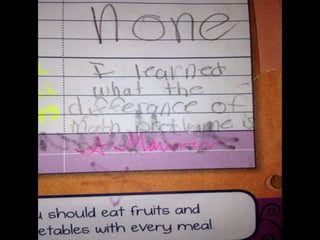 none
I learned
what the
differance of
math
u should eat fruits and
etables with every meal.